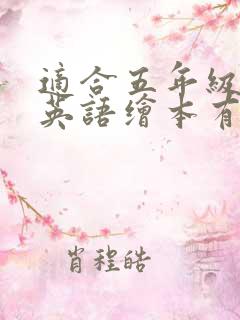 適合五年級
英語繪本有
肖程皓